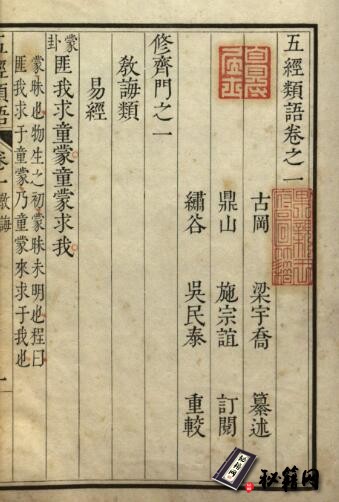 五經類語卷之一
古岡 梁宇喬 纂述
鼎山 施宗誼 訂閱
繡谷 吳民泰 重較
修齊門之一
敎誨類
易經
蒙卦
匪我求童蒙童蒙求我
蒙昧也物生之初蒙昧未明也程曰
匪我求于童蒙乃童蒙來求于我也
五經類語 卷一 敎誨 一
秘籍网
秘籍网